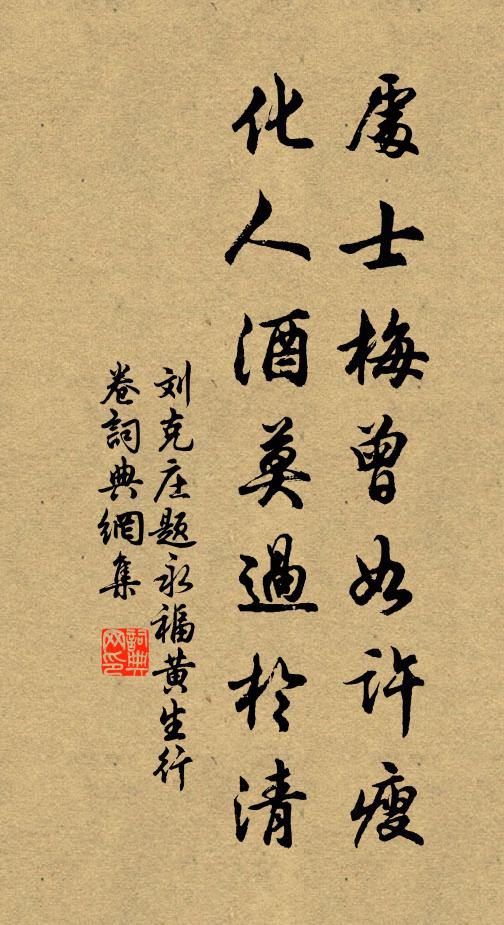 處士梅曾如許瘦
化人酒莫過於清
刘克庄题永福黄生行
卷詞典網集
詞典
网印